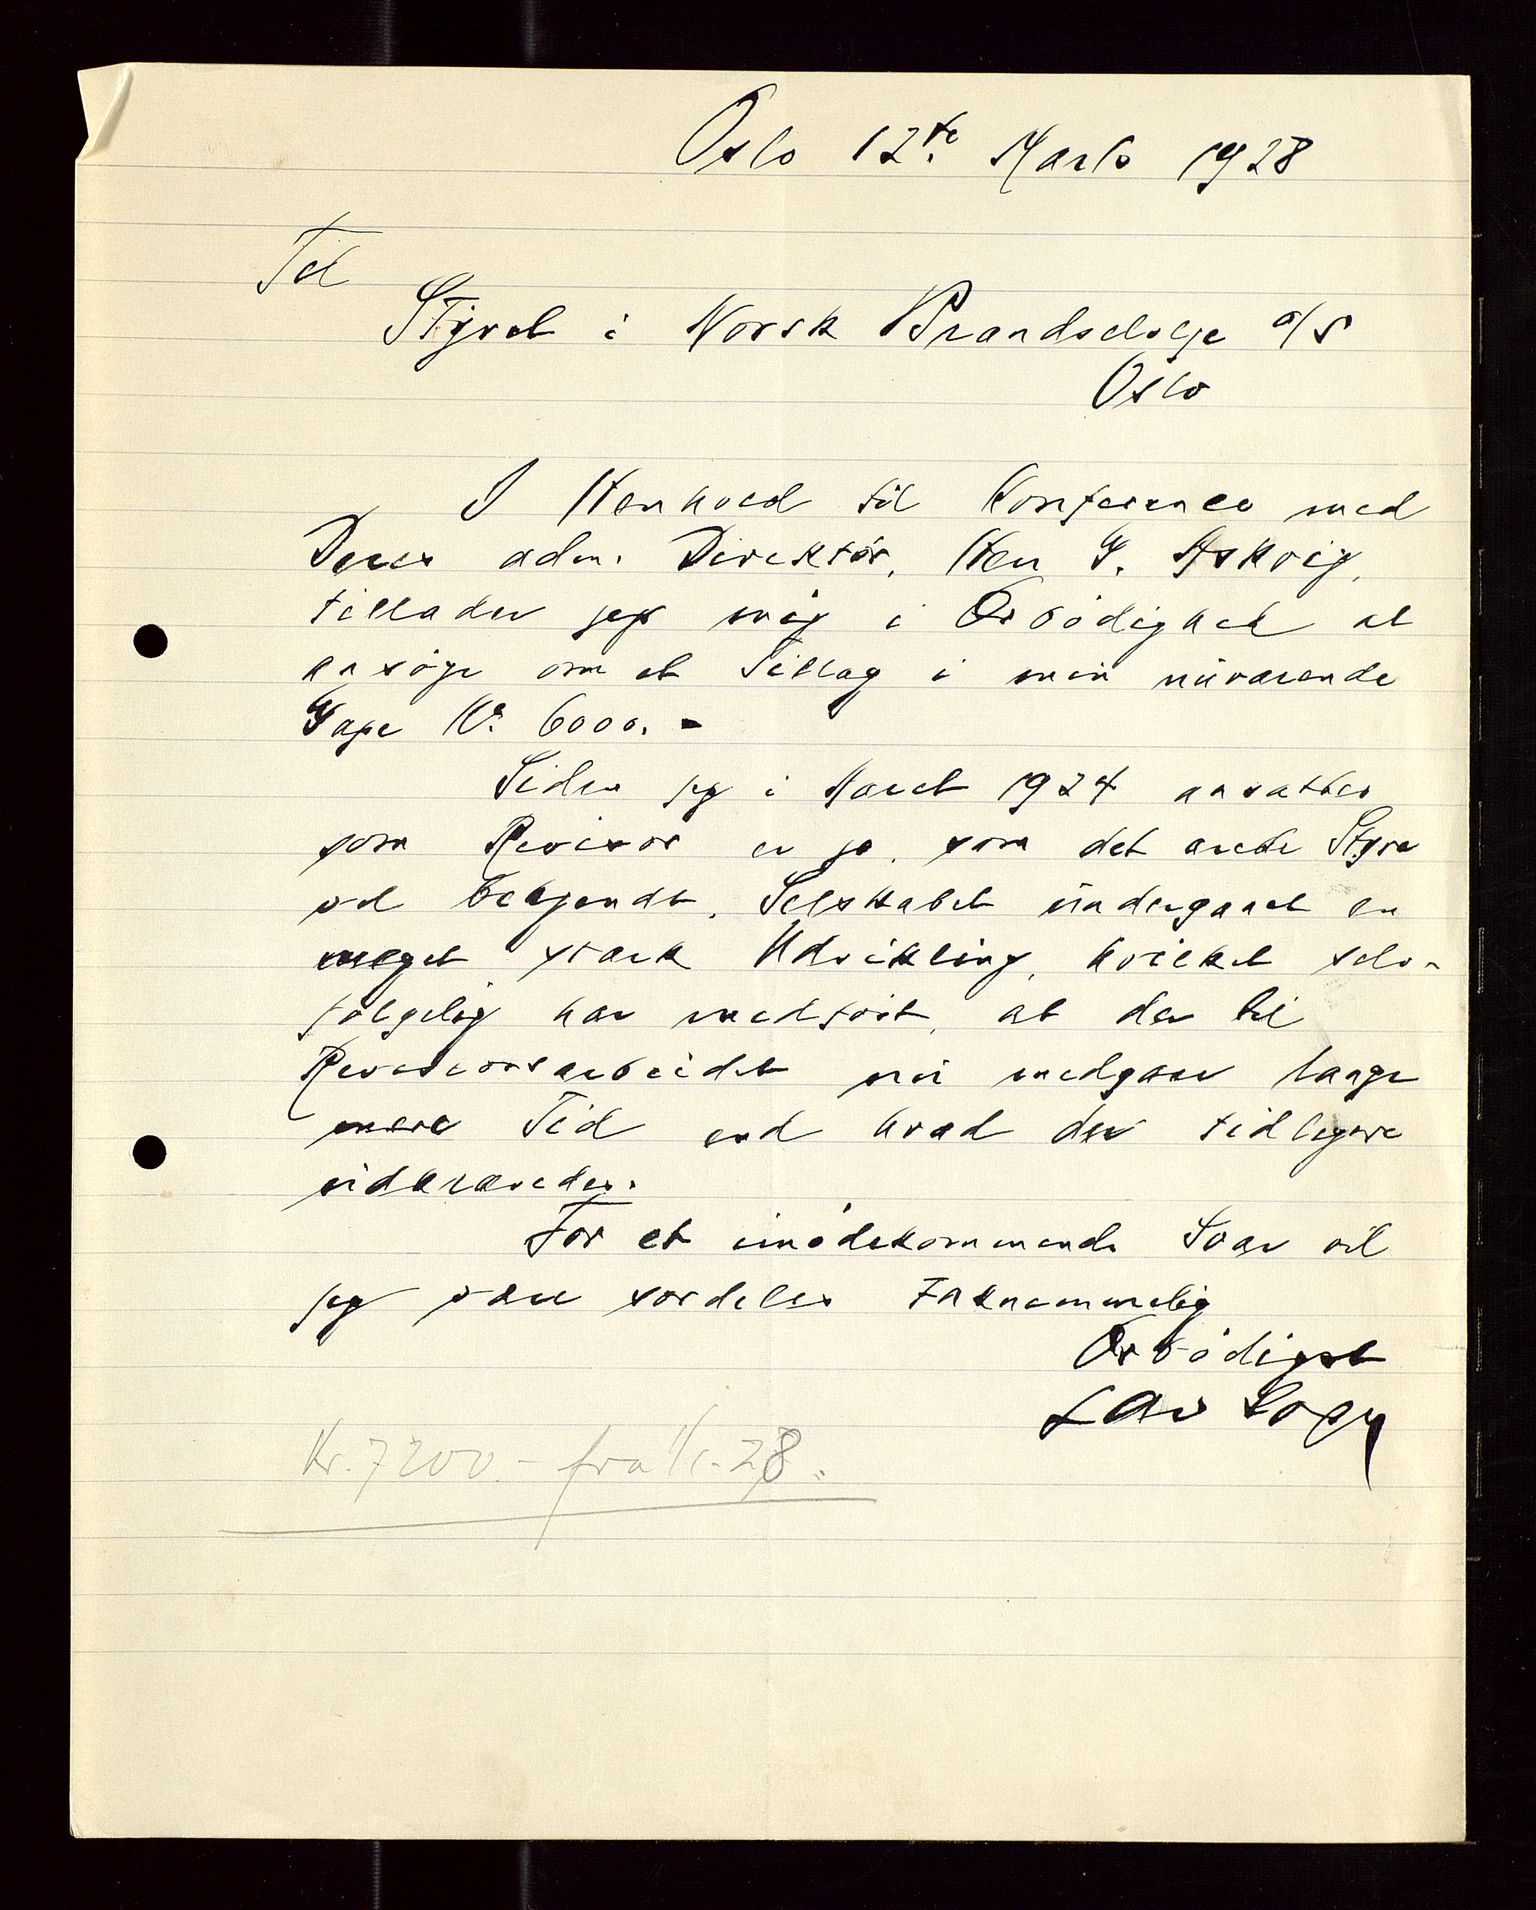 Oslo 12te Marts 1928
Til
Styret i Norsk Brandselskap a/s
Oslo
I Henhold til Konferance med
Deres adm. Direktør, Herr G. Askvig,
tillader jeg mig i Ærbødighet at
ansøge om et Tillæg i min nuværende
Gage Kr. 6000.-
Siden jeg i Marts 1924 ansattes
som Revisor er jo, som det ærede Styre
vel bekjendt, Selskabet undergaaet en
meget stærk Udvikling, hvilket selv-
følgelig har medført, at der til
Revisionsarbeidet nu medgaar langt
mere Tid end hvad der tidligere
udkrævedes.
For et imødekommende Svar vil
jeg være særdeles taknemmelig
Ærbødigst
Kr. 7200.- fra 1/1.-28.